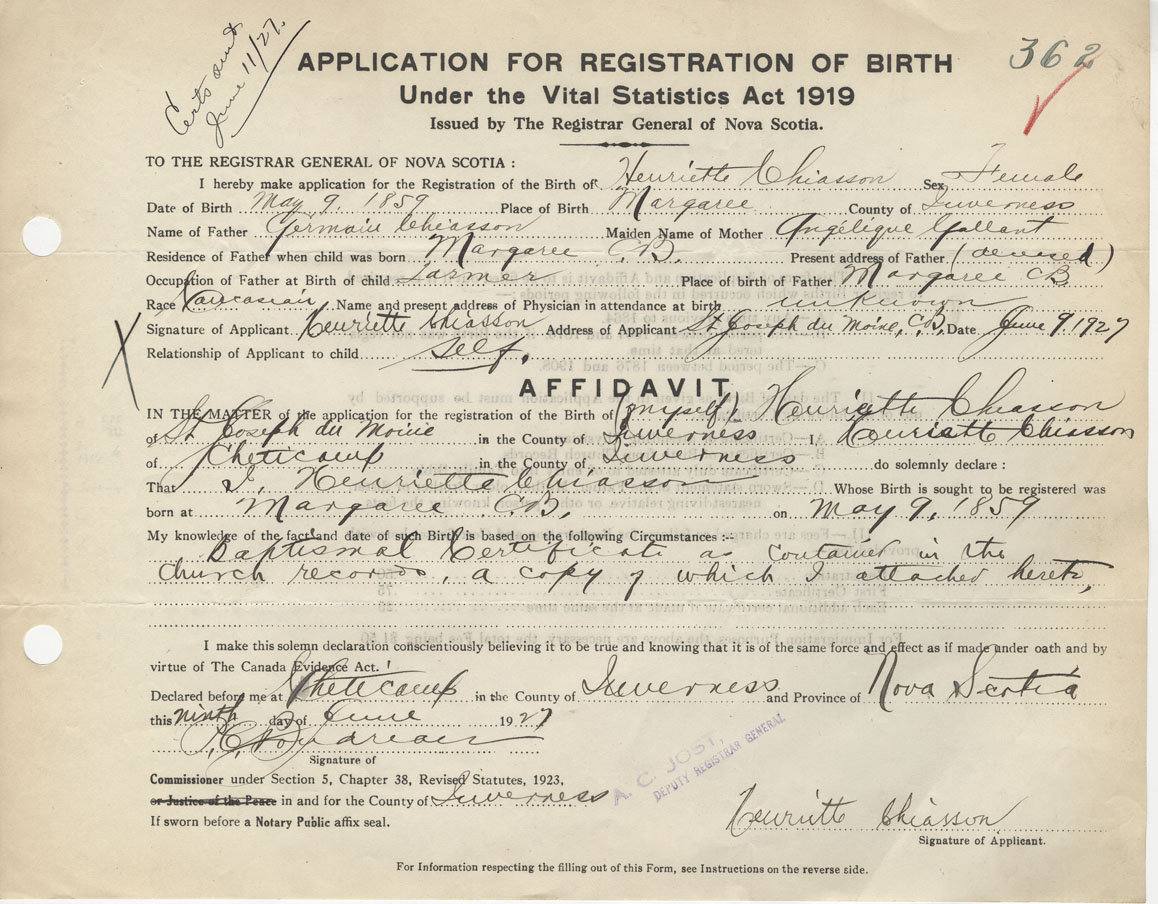 Certs out
June 11/27.
362
APPLICATION FOR REGISTRATION OF BIRTH
Under the Vital Statistics Act 1919
Issued by The Registrar General of Nova Scotia.
TO THE REGISTRAR GENERAL OF NOVA SCOTIA :
I hereby make application for the Registration of the Birth of Henriette Chiasson Sex Female
Date of Birth May 9, 1859 Place of Birth Margaree County of Inverness
Name of Father Germain Chiasson Maiden Name of Mother Angélique Gallant
Residence of Father when child was born Margaree C.B. Present address of Father (deceased)
Occupation of Father at Birth of child Farmer Place of birth of Father Margaree CB.
Race Caucasian Name and present address of Physician in attendance at birth unknown
X Signature of Applicant Henriette Chiasson Address of Applicant St. Joseph du Moine, C.B. Date June 9, 1927
Relationship of Applicant to child Self.
AFFIDAVIT
IN THE MATTER of the application for the registration of the Birth of (myself) Henriette Chiasson
of St Joseph du Moine in the County of Inverness I, Henriette Chiasson
of Cheticamp in the County of Inverness do solemnly declare :
That I, Henriette Chiasson Whose Birth is sought to be registered was
born at Margaree C.B. on May 9, 1859
My knowledge of the fact and date of such Birth is based on the following Circumstances :-
Baptismal Certificate as contained in the
church records, a copy of which I attached hereto,
I make this solemn declaration conscientiously believing it to be true and knowing that it is of the same force and effect as if made under oath and by
virtue of The Canada Evidence Act.
Declared before me at Cheticamp in the County of Inverness and Province of Nova Scotia
this ninth day of June 1927
Signature of
Commissioner under Section 5, Chapter 38, Revised Statutes, 1923,
or Justice of the Peace in and for the County of Inverness
If sworn before a Notary Public affix seal.
A. C. JOST,
DEPUTY REGISTRAR GENERAL
Henriette Chiasson
Signature of Applicant.
For Information respecting the filling out of this Form, see Instructions on the reverse side.